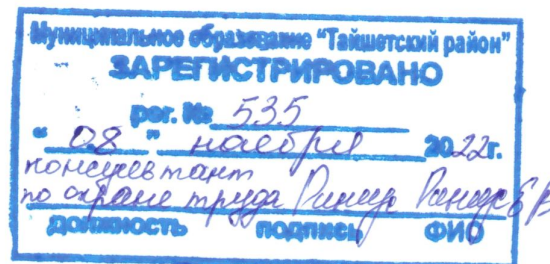 Муниципальное образование "Тайшетский район"
ЗАРЕГИСТРИРОВАНО
рег. № 535
"08" ноября 2022г.
консультант
по охране труда
должность подпись ФИО